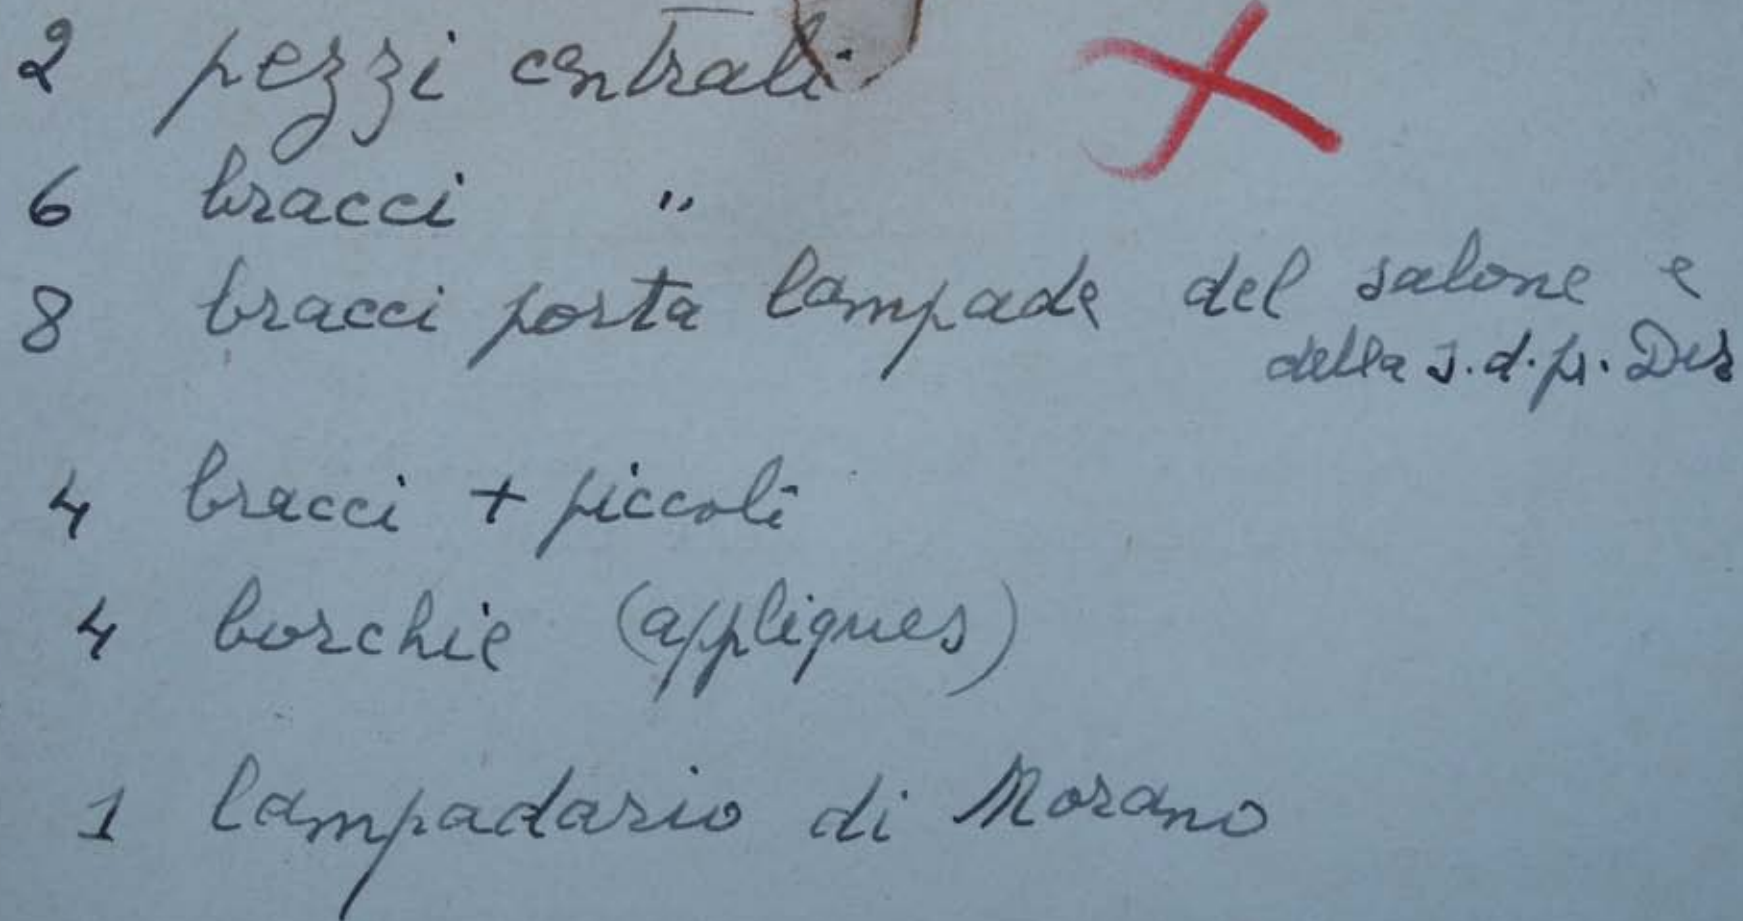 2 pezzi centrali
6 bracci "
8 bracci porta lampade del salone e
della s.d.pr.
4 bracci + piccoli
4 borchie (appliques)
1 lampadario di Morano